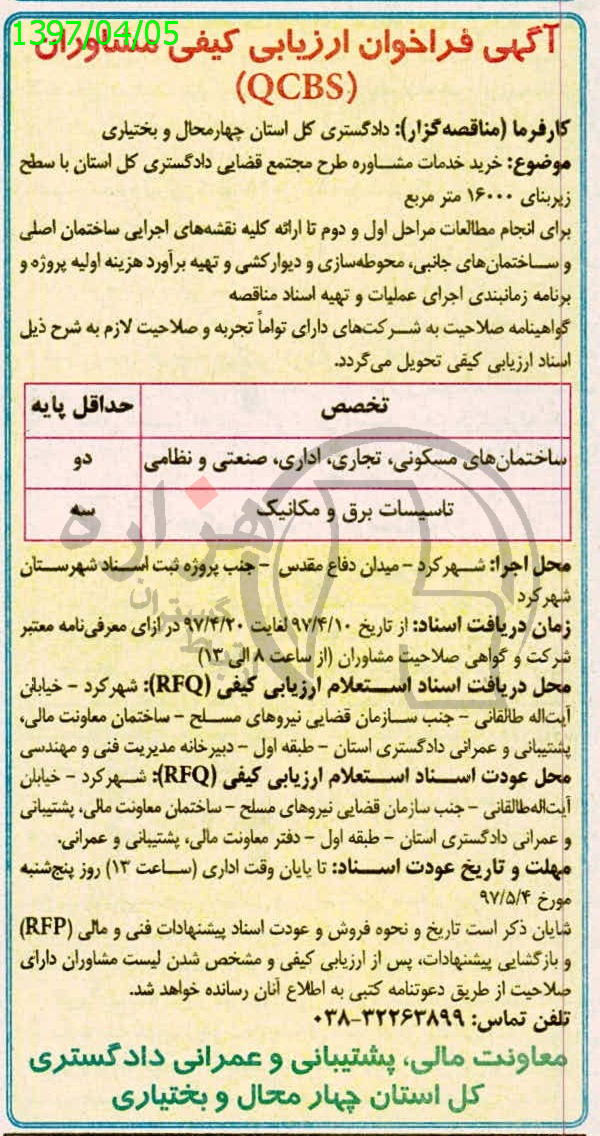 1397/04/05
آگهی فراخوان ارزیابی کیفی مشاوران
(QCBS)
کارفرما (مناقصه‌گزار): دادگستری کل استان چهارمحال و بختیاری
موضوع: خرید خدمات مشاوره طرح مجتمع قضایی دادگستری کل استان با سطح
زیربنای ۱۶۰۰۰ متر مربع
برای انجام مطالعات مراحل اول و دوم تا ارائه کلیه نقشه‌های اجرایی ساختمان اصلی
و ساختمان‌های جانبی، محوطه‌سازی و دیوارکشی و تهیه برآورد هزینه اولیه پروژه و
برنامه زمانبندی اجرای عملیات و تهیه اسناد مناقصه
گواهینامه صلاحیت به شرکت‌های دارای تواماً تجربه و صلاحیت لازم به شرح ذیل
اسناد ارزیابی کیفی تحویل می‌گردد.
تخصص حداقل پایه
ساختمان‌های مسکونی، تجاری، اداری، صنعتی و نظامی دو
تاسیسات برق و مکانیک سه
هزاره
گستران
محل اجرا: شهرکرد – میدان دفاع مقدس – جنب پروژه ثبت اسناد شهرستان
شهرکرد
زمان دریافت اسناد: از تاریخ ۹۷/۴/۱۰ لغایت ۹۷/۴/۲۰ در ازای معرفی‌نامه معتبر
شرکت و گواهی صلاحیت مشاوران (از ساعت ۸ الی ۱۳)
محل دریافت اسناد استعلام ارزیابی کیفی (RFQ): شهرکرد – خیابان
آیت‌اله طالقانی – جنب سازمان قضایی نیروهای مسلح – ساختمان معاونت مالی،
پشتیبانی و عمرانی دادگستری استان – طبقه اول – دبیرخانه مدیریت فنی و مهندسی
محل عودت اسناد استعلام ارزیابی کیفی (RFQ): شهرکرد – خیابان
آیت‌اله‌طالقانی – جنب سازمان قضایی نیروهای مسلح – ساختمان معاونت مالی، پشتیبانی
و عمرانی دادگستری استان – طبقه اول – دفتر معاونت مالی، پشتیبانی و عمرانی.
مهلت و تاریخ عودت اسناد: تا پایان وقت اداری (ساعت ۱۳) روز پنج‌شنبه
مورخ ۹۷/۵/۴
شایان ذکر است تاریخ و نحوه فروش و عودت اسناد پیشنهادات فنی و مالی (RFP)
و بازگشایی پیشنهادات، پس از ارزیابی کیفی و مشخص شدن لیست مشاوران دارای
صلاحیت از طریق دعوتنامه کتبی به اطلاع آنان رسانده خواهد شد.
تلفن تماس: ۳۲۲۶۳۸۹۹-۰۳۸
معاونت مالی، پشتیبانی و عمرانی دادگستری
کل استان چهار محال و بختیاری